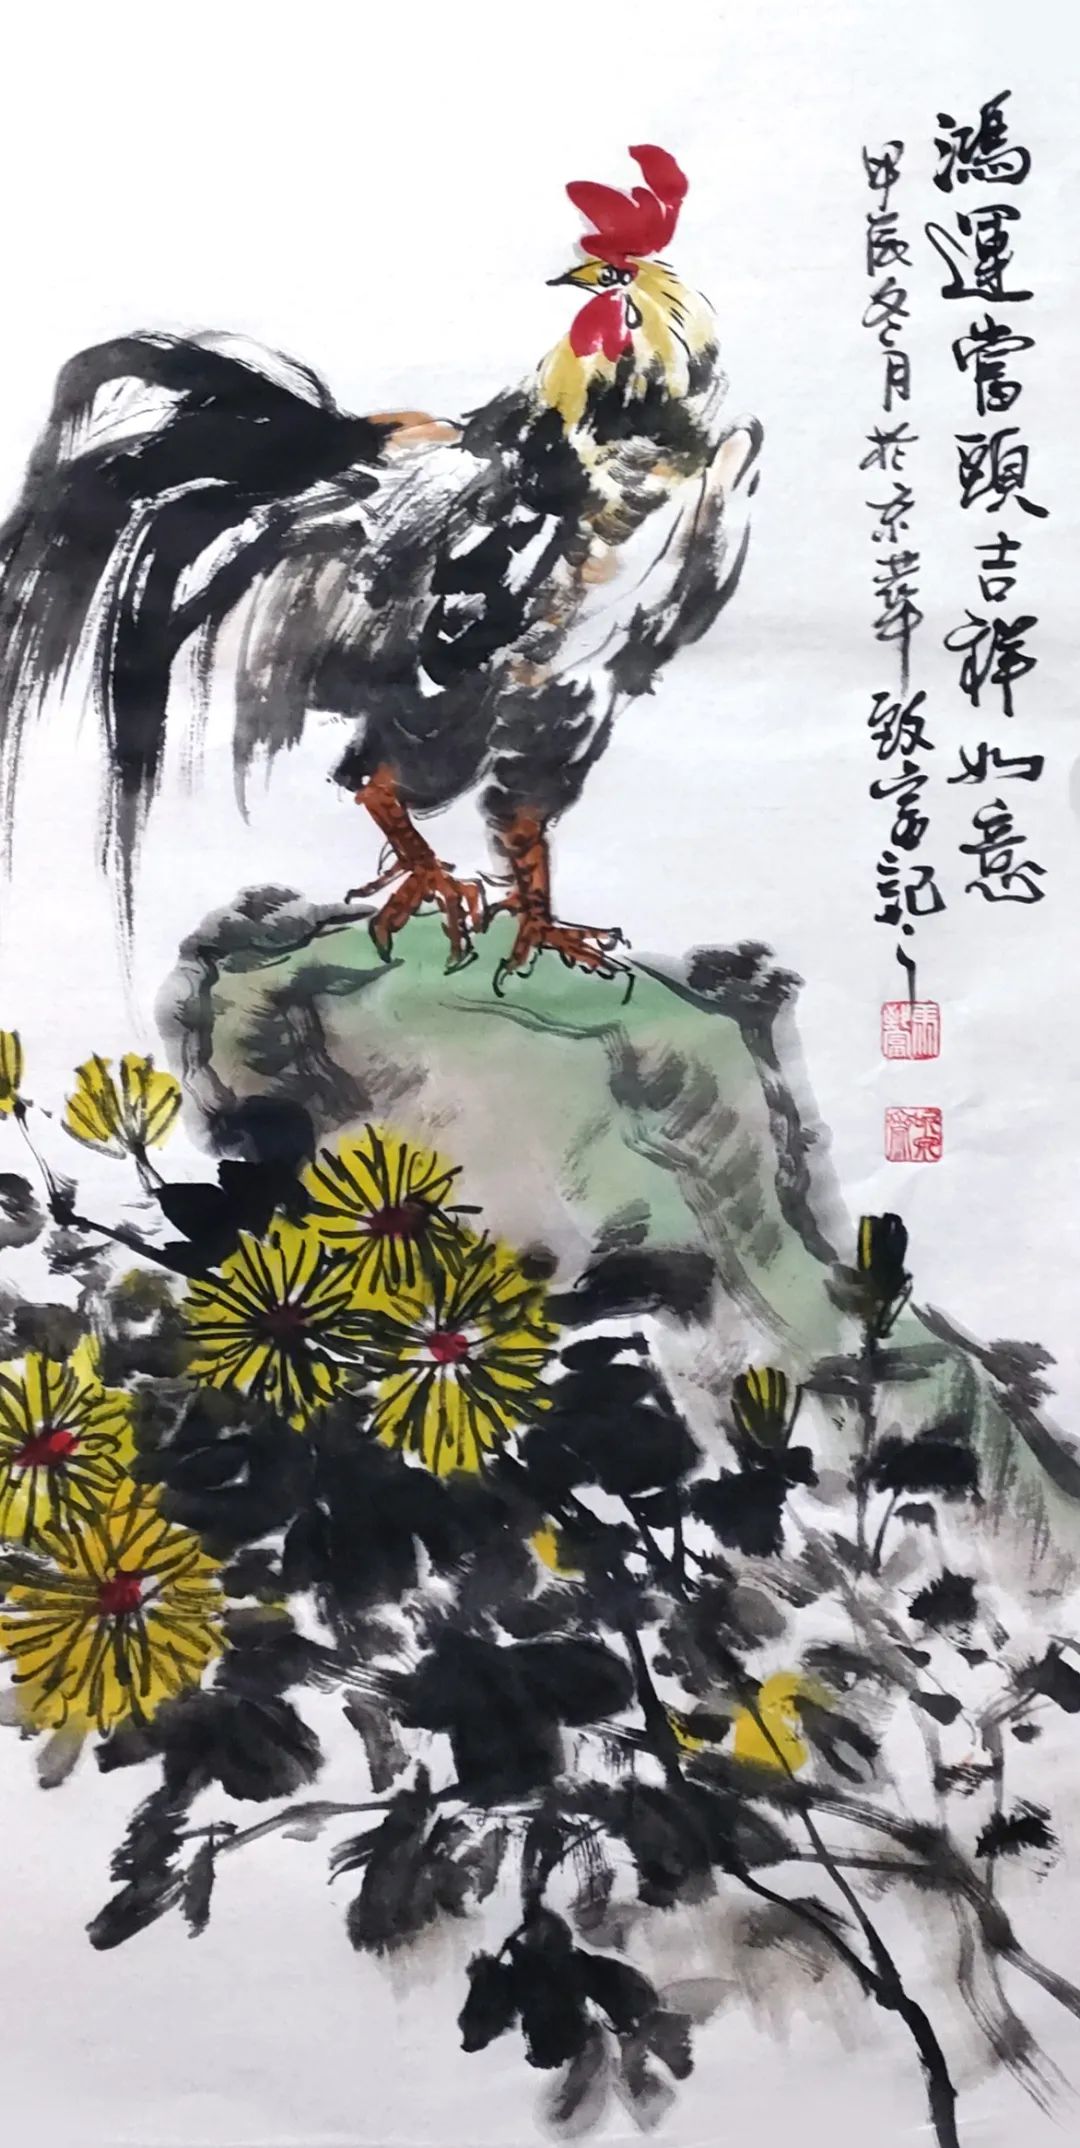 鴻運當頭吉祥如意
甲辰冬月於京華致富記